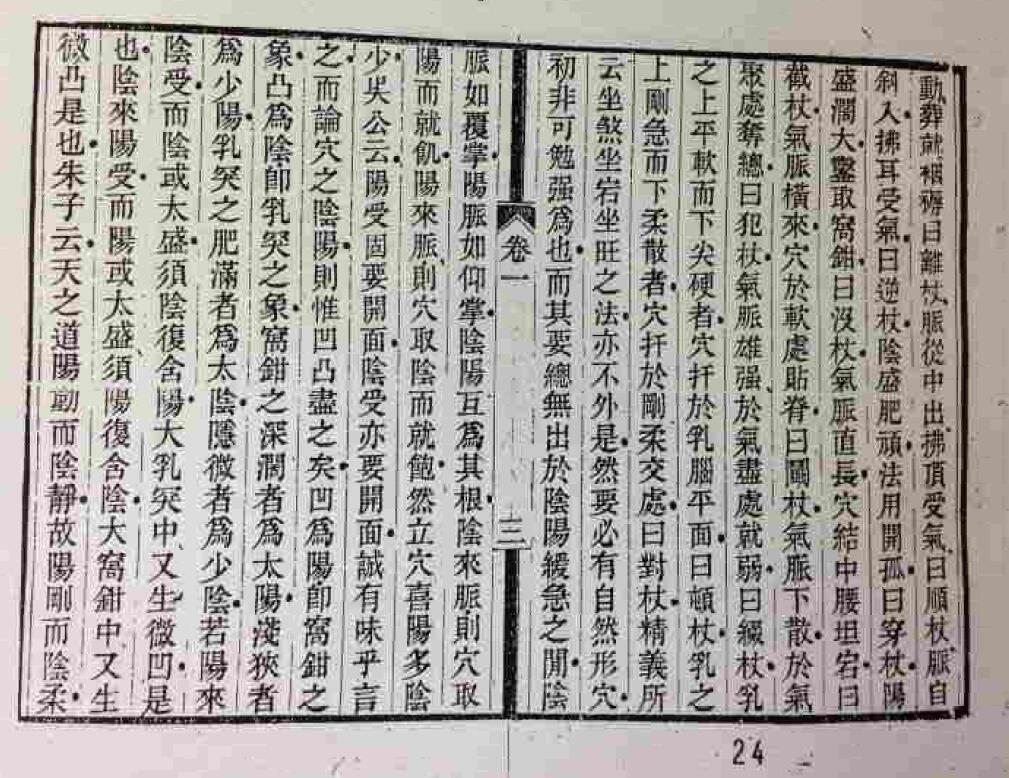 動葬就裀褥曰離杖脈從中出拂頂受氣曰順杖脈自
斜入拂耳受氣曰逆杖陰盛肥頑法用開孤曰穿杖陽
盛濶大鑿取窩鉗曰沒杖氣脈直長穴結中腰坦宕曰
截杖氣脈橫來穴於軟處貼脊曰圖杖氣脈下散於氣
聚處奪總曰犯杖氣脈雄强於氣盡處就弱曰綴杖乳
之上平軟而下尖硬者穴扦於乳腦平面曰頓杖乳之
上剛急而下柔散者穴扦於剛柔交處曰對杖精義所
云坐煞坐宕坐旺之法亦不外是然要必有自然形穴
初非可勉强爲也而其要總無出於陰陽緩急之閒陰
卷一
三
脈如覆掌陽脈如仰掌陰陽互爲其根陰來脈則穴取
陽而就飢陽來脈則穴取陰而就飽然立穴喜陽多陰
少吳公云陽受固要開面陰受亦要開面誠有味乎言
之而論穴之陰陽則惟凹凸盡之矣凹爲陽卽窩鉗之
象凸爲陰卽乳突之象窩鉗之深濶者爲太陽淺狹者
爲少陽乳突之肥滿者爲太陰隱微者爲少陰若陽來
陰受而陰或太盛須陰復含陽大乳突中又生微凹是
也陰來陽受而陽或太盛須陽復含陰大窩鉗中又生
微凸是也朱子云天之道陽動而陰靜故陽剛而陰柔
24